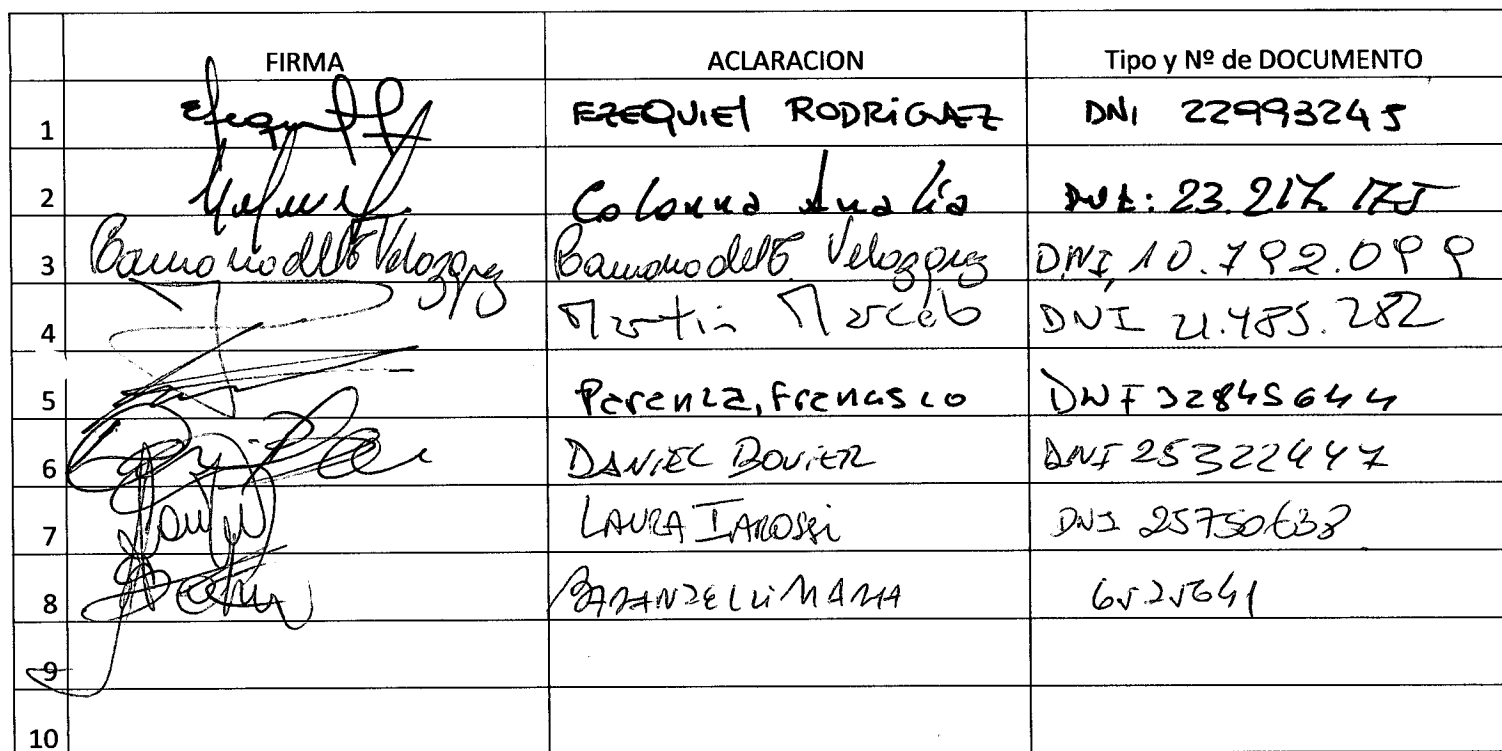 FIRMA ACLARACION Tipo y Nº de DOCUMENTO
1 EZEQUIEl RODRiGUEZ DNI 22993245
2 Colonna Analía DNI: 23.217.175
3 Velazquez Velazquez DNI 10.792.099
4 Martin Marcelo DNI 21.485.282
5 Perenza, Francisco DNI 32845644
6 DANIEL BOVIER DNI 25322447
7 LAURA IAROSSi DNI 25750633
8 MARIA 6525641
9
10